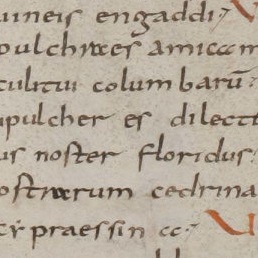 uineis engaddi; V
pulchra es amica m
culi tui columbarū
u pulcher es dilect
us noster floridus
ostrarum cedrina
cypraessinae; V